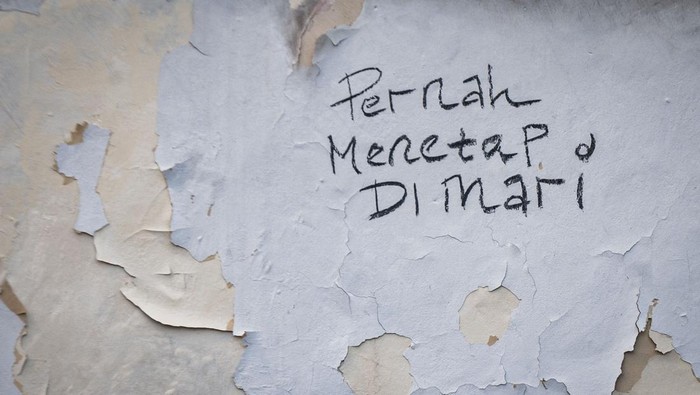 Pernah
Menetap
Di Mari